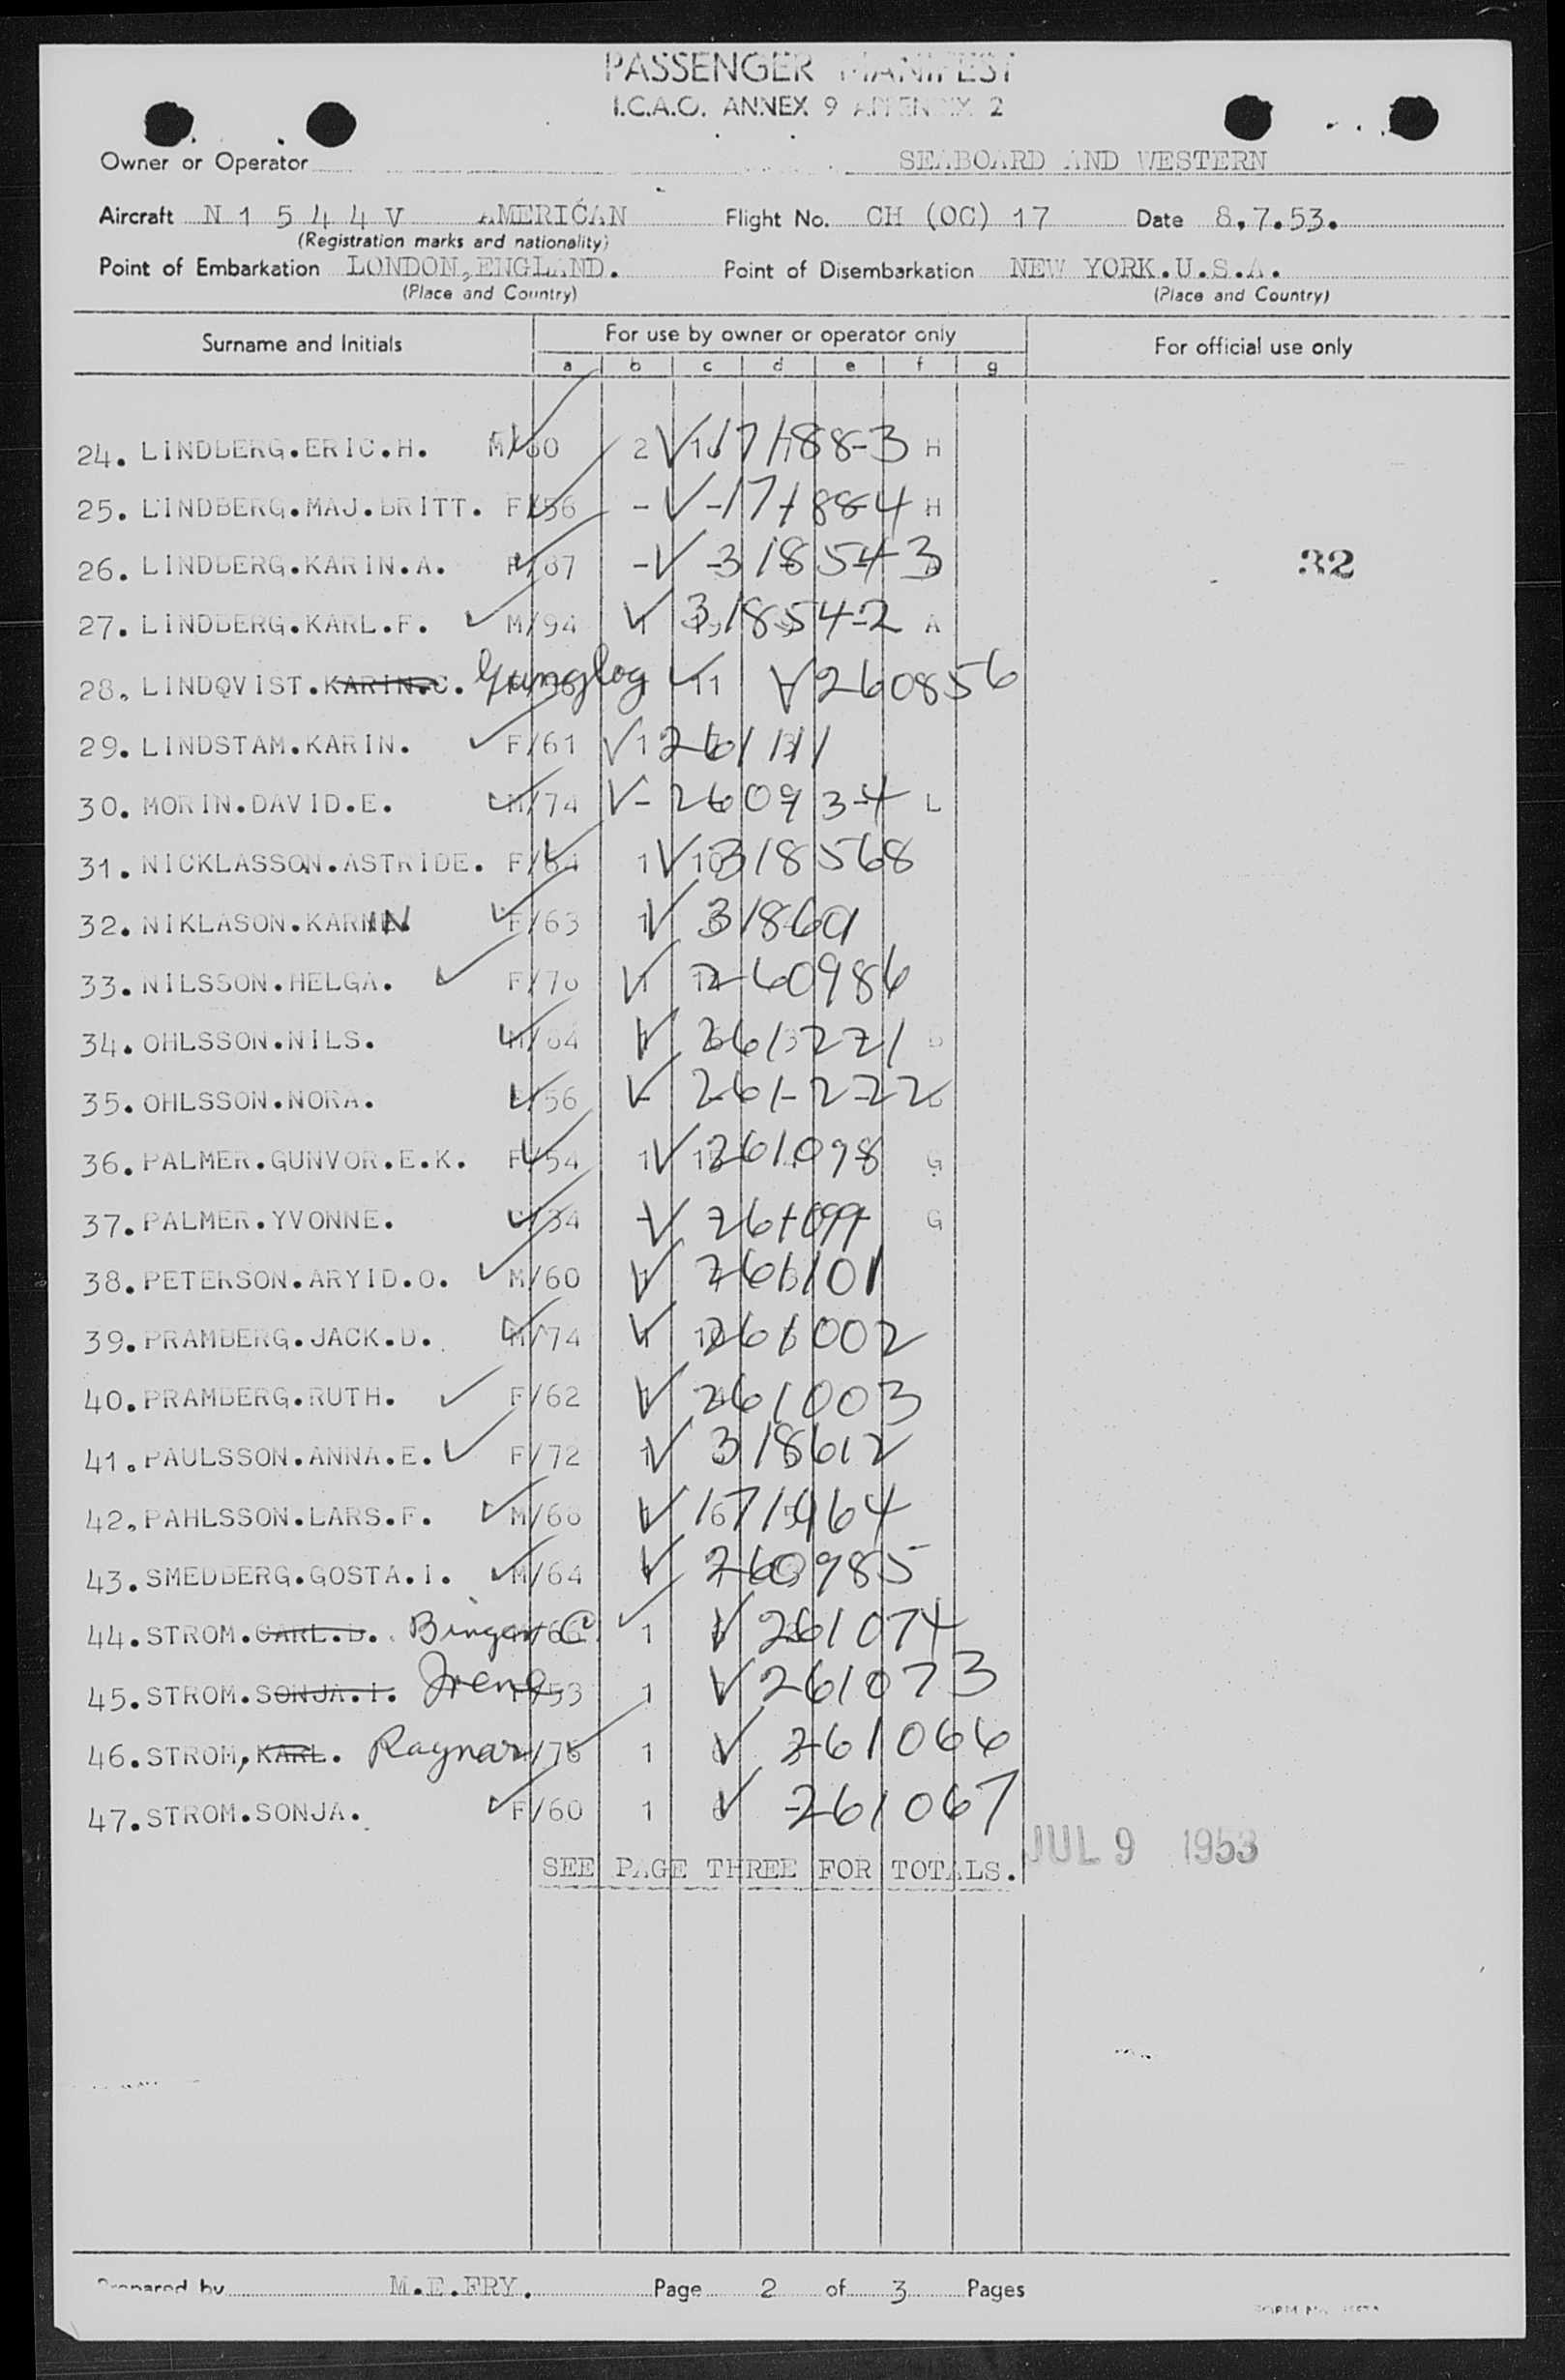 PASSENGER MANIFEST
I.C.A.O. ANNEX 9 APPENDIX 2
Owner or Operator SEABOARD AND WESTERN
Aircraft N 1 5 4 4 V AMERICAN Flight No. CH (OC) 17 Date 8.7.53.
(Registration marks and nationality)
Point of Embarkation LONDON, ENGLAND. Point of Disembarkation NEW YORK.U.S.A.
(Place and Country) (Place and Country)
Surname and Initials For use by owner or operator only For official use only
a b c d e f g
24. LINDBERG.ERIC.H. M/60 2 171883 H
25. LINDBERG.MAJ.BRITT. F/56 - 171884 H
26. LINDBERG.KARIN.A. F/87 - 318543
32
27. LINDBERG.KARL.F. M/94 318542 A
28. LINDQVIST.KARIN.C. 11 260856
29. LINDSTAM.KARIN. F/61 1 261111
30. MORIN.DAVID.E. M/74 - 260934 L
31. NICKLASSON.ASTRIDE. F/64 1 318568
32. NIKLASON.KARIN F/63 1 318601
33. NILSSON.HELGA. F/76 1 260986
34. OHLSSON.NILS. M/84 261221
35. OHLSSON.NORA. F/56 - 261222
36. PALMER.GUNVOR.E.K. F/54 1 261098 G
37. PALMER.YVONNE. /34 - 261099 G
38. PETERSON.ARYID.O. M/60 261101
39. PRAMBERG.JACK.D. M/74 261002
40. PRAMBERG.RUTH. F/62 261003
41. PAULSSON.ANNA.E. F/72 1 318612
42. PAHLSSON.LARS.F. M/68 171464
43. SMEDBERG.GOSTA.I. M/64 260985
44. STROM.CARL.D. Binger C. 1 261074
45. STROM.SONJA.I. Irene /53 1 261073
46. STROM,KARL. Ragnar /76 1 261066
47. STROM.SONJA. F/60 1 261067
JUL 9 1953
SEE PAGE THREE FOR TOTALS.
Prepared by M.E.FRY. Page 2 of 3 Pages